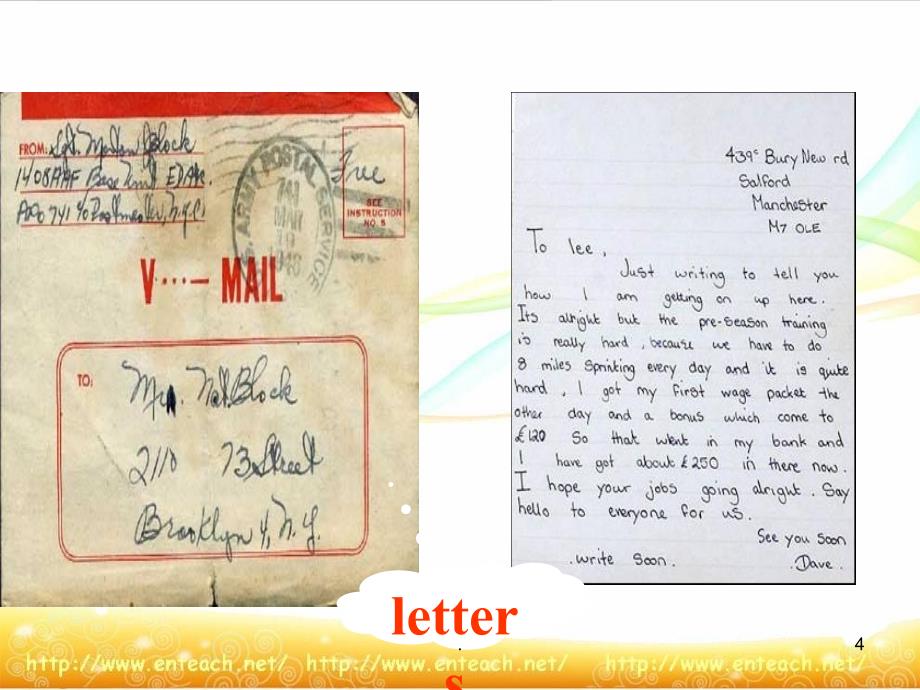 FROM: Sgt. Morton Block
1408 AAF Base Unit
APO 741 c/o Postmaster, N.Y.C.
U.S. ARMY POSTAL SERVICE
741
MAR
Free
SEE
INSTRUCTION
NO 5
V···— MAIL
TO:
Mrs. Nat Block
2110 73 Street
Brooklyn 4, N.Y.
439c Bury New rd
Salford
Manchester
M7 OLE
To lee,
Just writing to tell you
how I am getting on up here.
Its alright but the pre-season training
is really hard, because we have to do
8 miles sprinting every day and it is quite
hard, I got my first wage packet the
other day and a bonus which come to
£120 So that went in my bank and
I have got about £250 in there now.
I hope your jobs going alright. Say
hello to everyone for us.
See you soon
.write soon. .Dave.
letter
s
4
http://www.enteach.net/ http://www.enteach.net/ http://www.enteach.net/